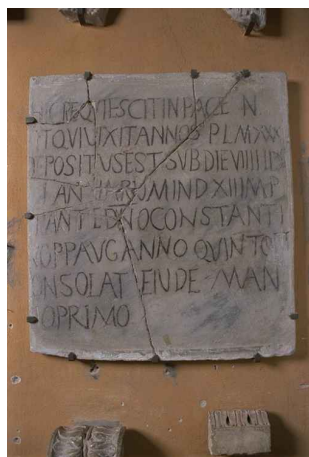 HIC REQVIESCIT IN PACE N
TO QVI VIXIT ANNOS PL M XXX
EPOSITUS EST SVB DIE VIIII
IAN RUM IND XIII IMP
TANT E D NO CONSTANTI
PP AVG ANNO QVINTO
NSOLAT EIUDE MAN
O PRIMO